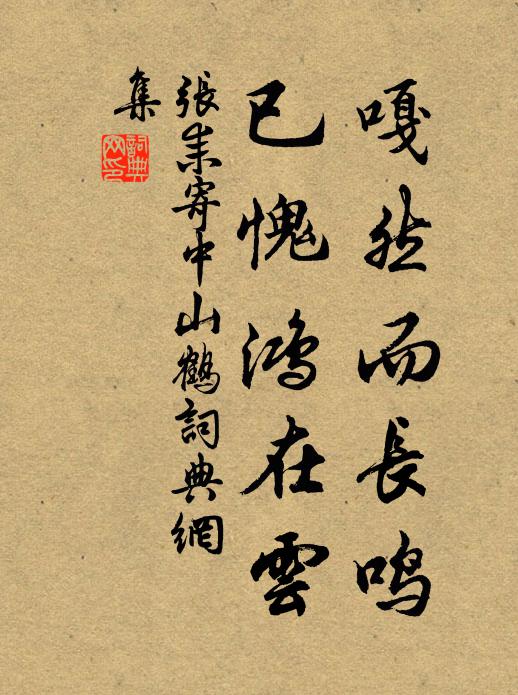 嘎然而長鳴
已愧鴻在雲
張耒寄中山鶴詞典網
集
詞典
网印